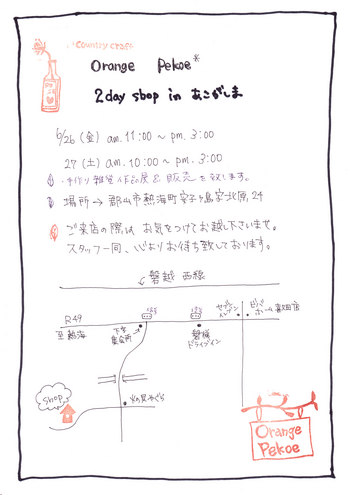 Country craft
Orange Pekoe*
2day shop in あこがしま
6/26(金) am.11:00~pm.3:00
27(土) am.10:00~pm.3:00
手作り雑貨作品展&販売を致します。
場所→郡山市熱海町安子ヶ島字北原24
ご来店の際は お気をつけてお越し下さいませ。
スタッフ一同、心よりお待ち致しております。
磐越西線
R49
至熱海
下宿
集会所
磐梯
ドライブイン
セブン
イレブン
ホーム
shop
火の見やぐら
Orange
Pekoe